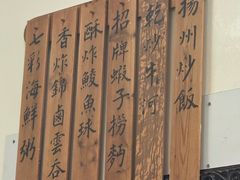 揚州炒飯
乾炒牛河
招牌蝦子撈麵
酥炸鯪魚球
香炸錦鹵雲吞
七彩海鮮粥